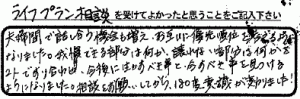 ライフプラン相談を受けてよかったと思うことをご記入下さい
夫婦間で話し合う機会も増え、お互いに優先順位を考えるように
なりました。我慢できる部分は何か、譲れない部分は何かを
トであり、今後に生かすべき事と、今すべき事を見つける
ようになりました。相談をお願いしてから、180度意識が変わりました!